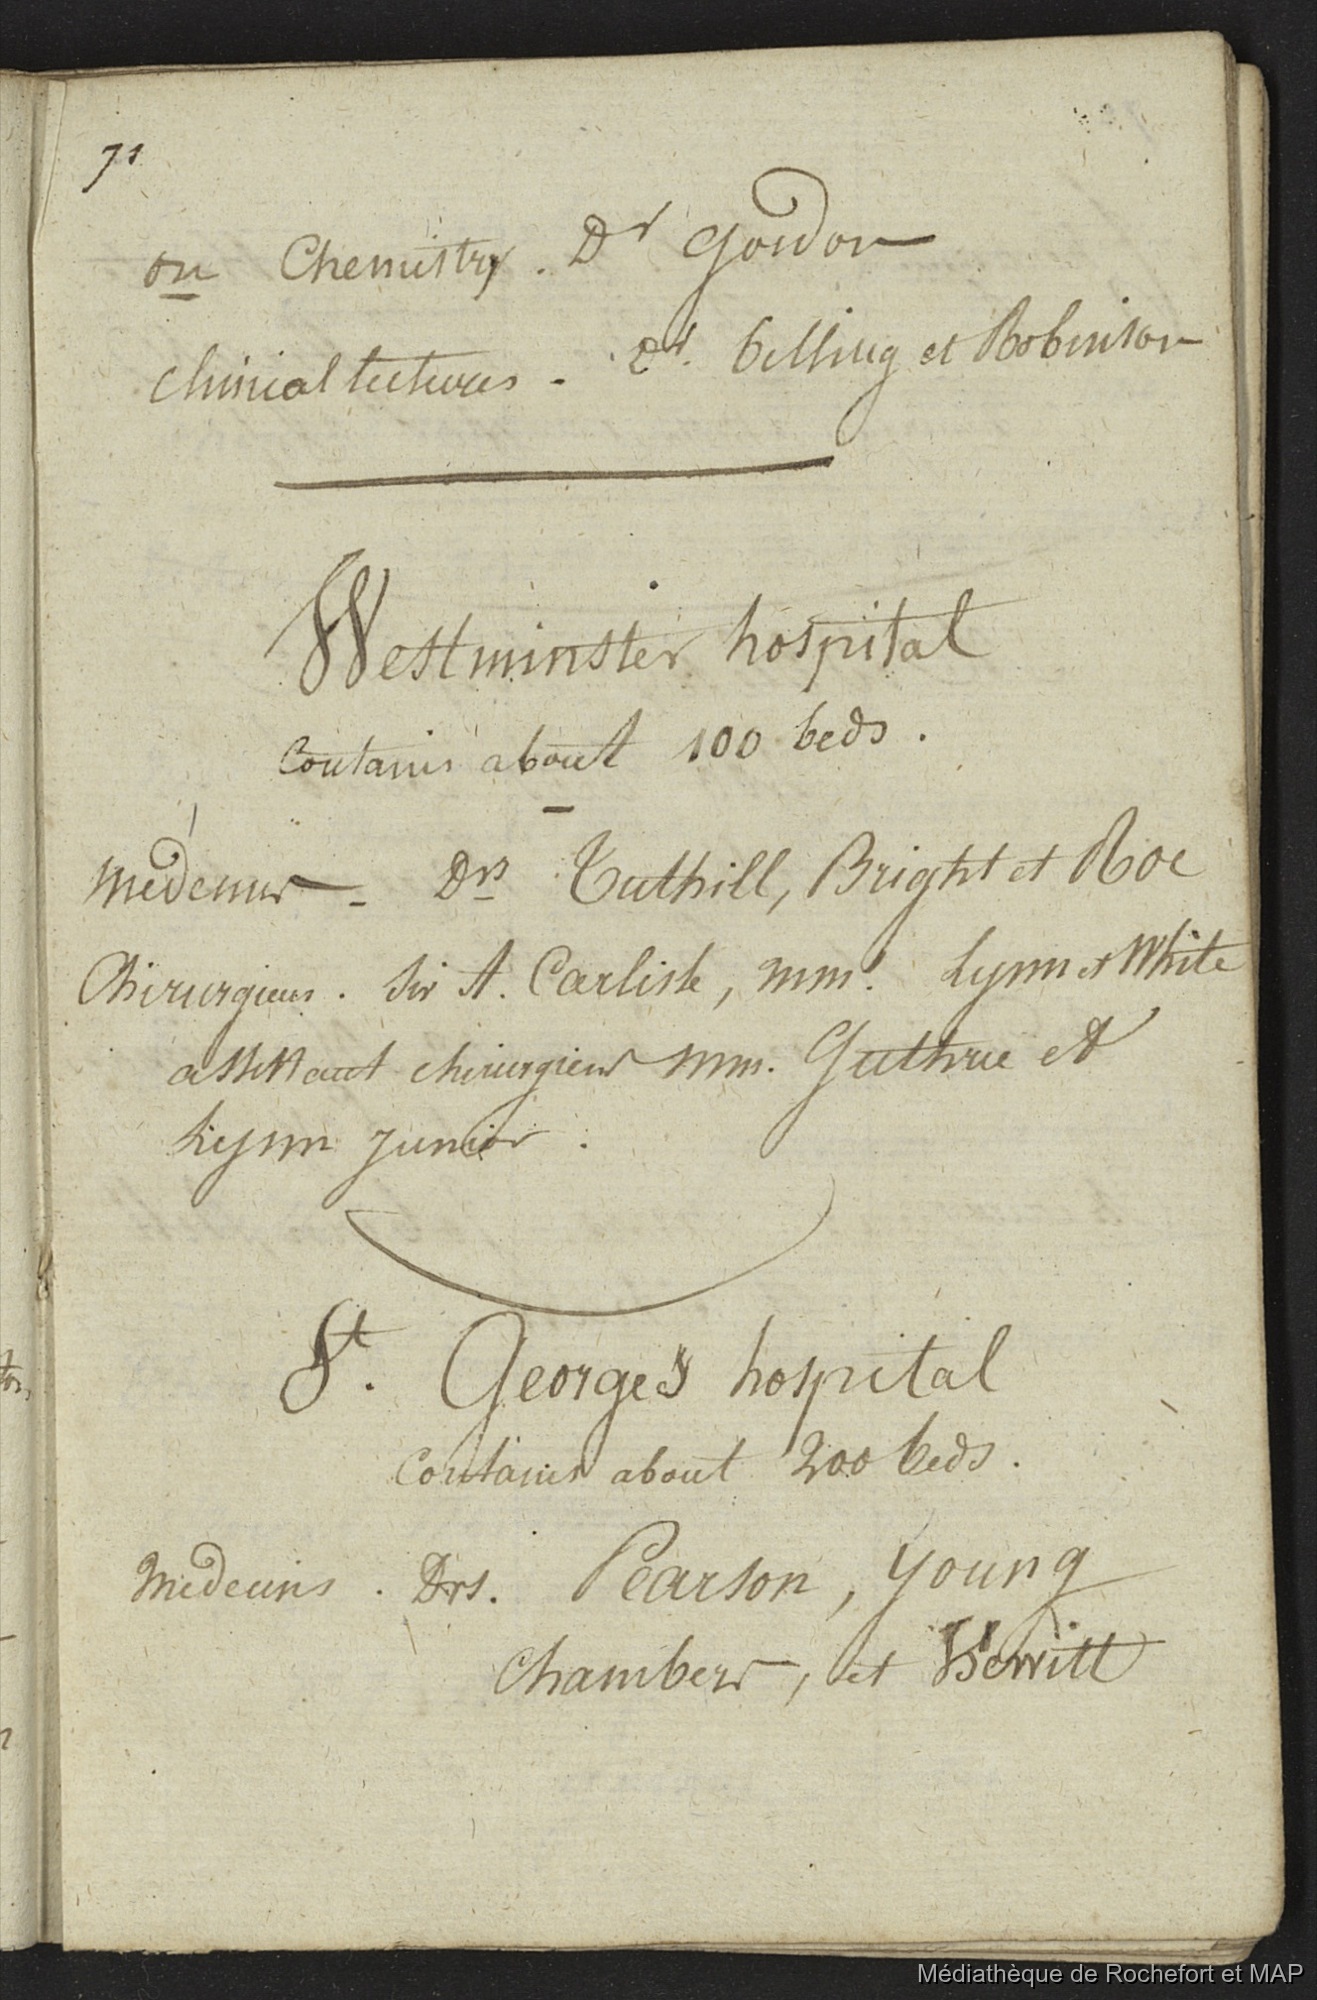 71
on Chemistry. Dr Gordon
Clinical lectures - Dr. billing et Robinson
Westminster hospital
Contains about 100 beds.
Médecins - Drs Tuthill, Bright et Roe
Chirurgiens. Sir A. Carlisle, mm. Lynn et White
assistant chirurgiens mm. Guthrie et
Lynn junior.
St. George's hospital
Contains about 200 beds.
Médecins. Drs. Pearson, Young
Chambers, et
Médiathèque de Rochefort et MAP